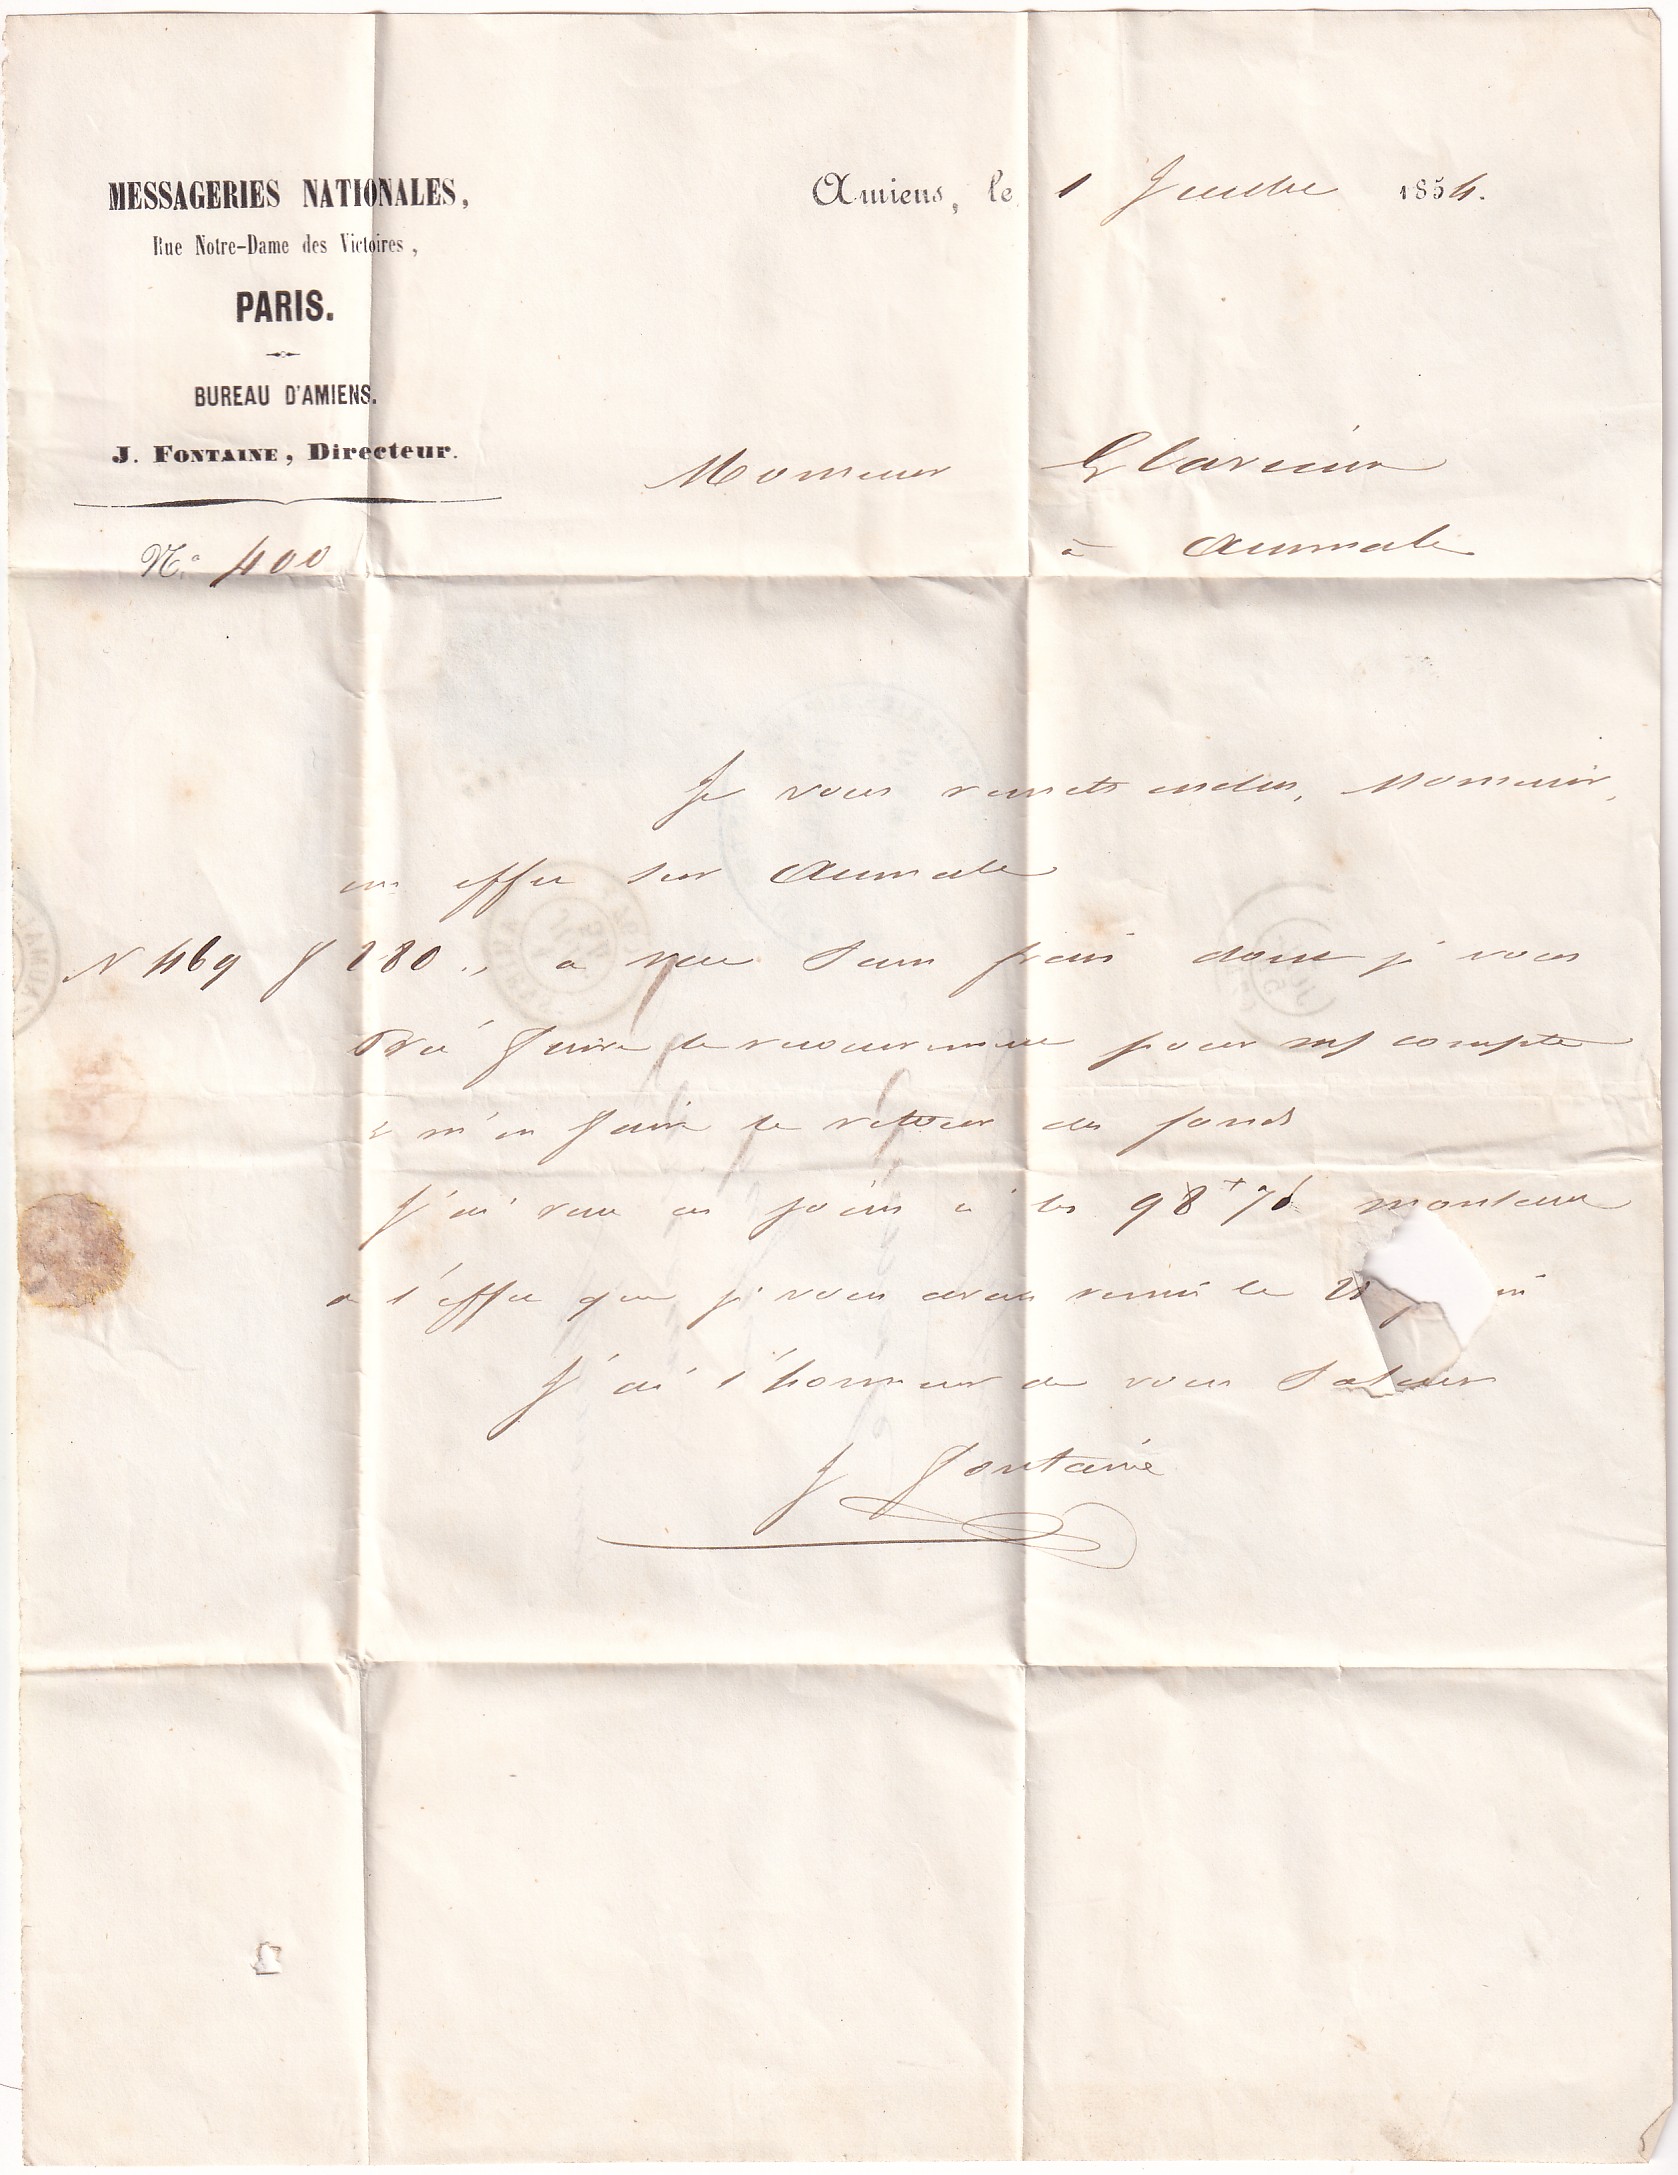 MESSAGERIES NATIONALES,
Rue Notre-Dame des Victoires,
PARIS.
BUREAU D'AMIENS.
J. FONTAINE, Directeur.
Amiens, le 1 Juillet 1854.
Monsieur
à Aumale
N.o 400
Je vous remets inclus, Monsieur,
un effet sur Aumale
N 469 f 280 ., a vue Sans frais dont je vous
Prié faire le recouvrement pour m/ compte
& m'en faire le retour des fonds
J'ai recu en les 98 + 75 montant
a l'effet que je vous avais remis le
J'ai l'honneur de vous Saluer
J Fontaine